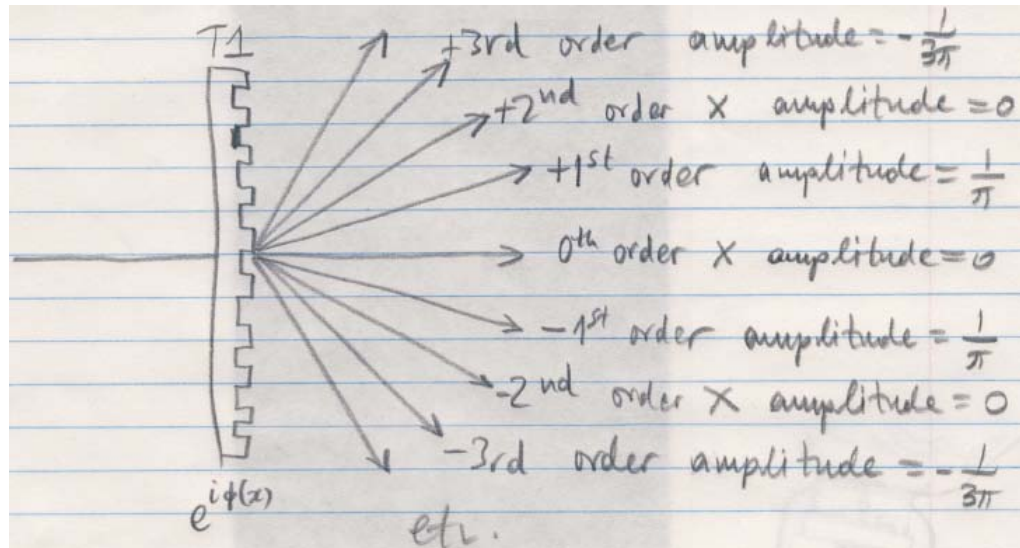 T1
+3rd order amplitude = - 1/3π
+2nd order X amplitude = 0
+1st order amplitude = 1/π
0th order X amplitude = 0
-1st order amplitude = 1/π
-2nd order X amplitude = 0
-3rd order amplitude = - 1/3π
e^iϕ(x)
etc.